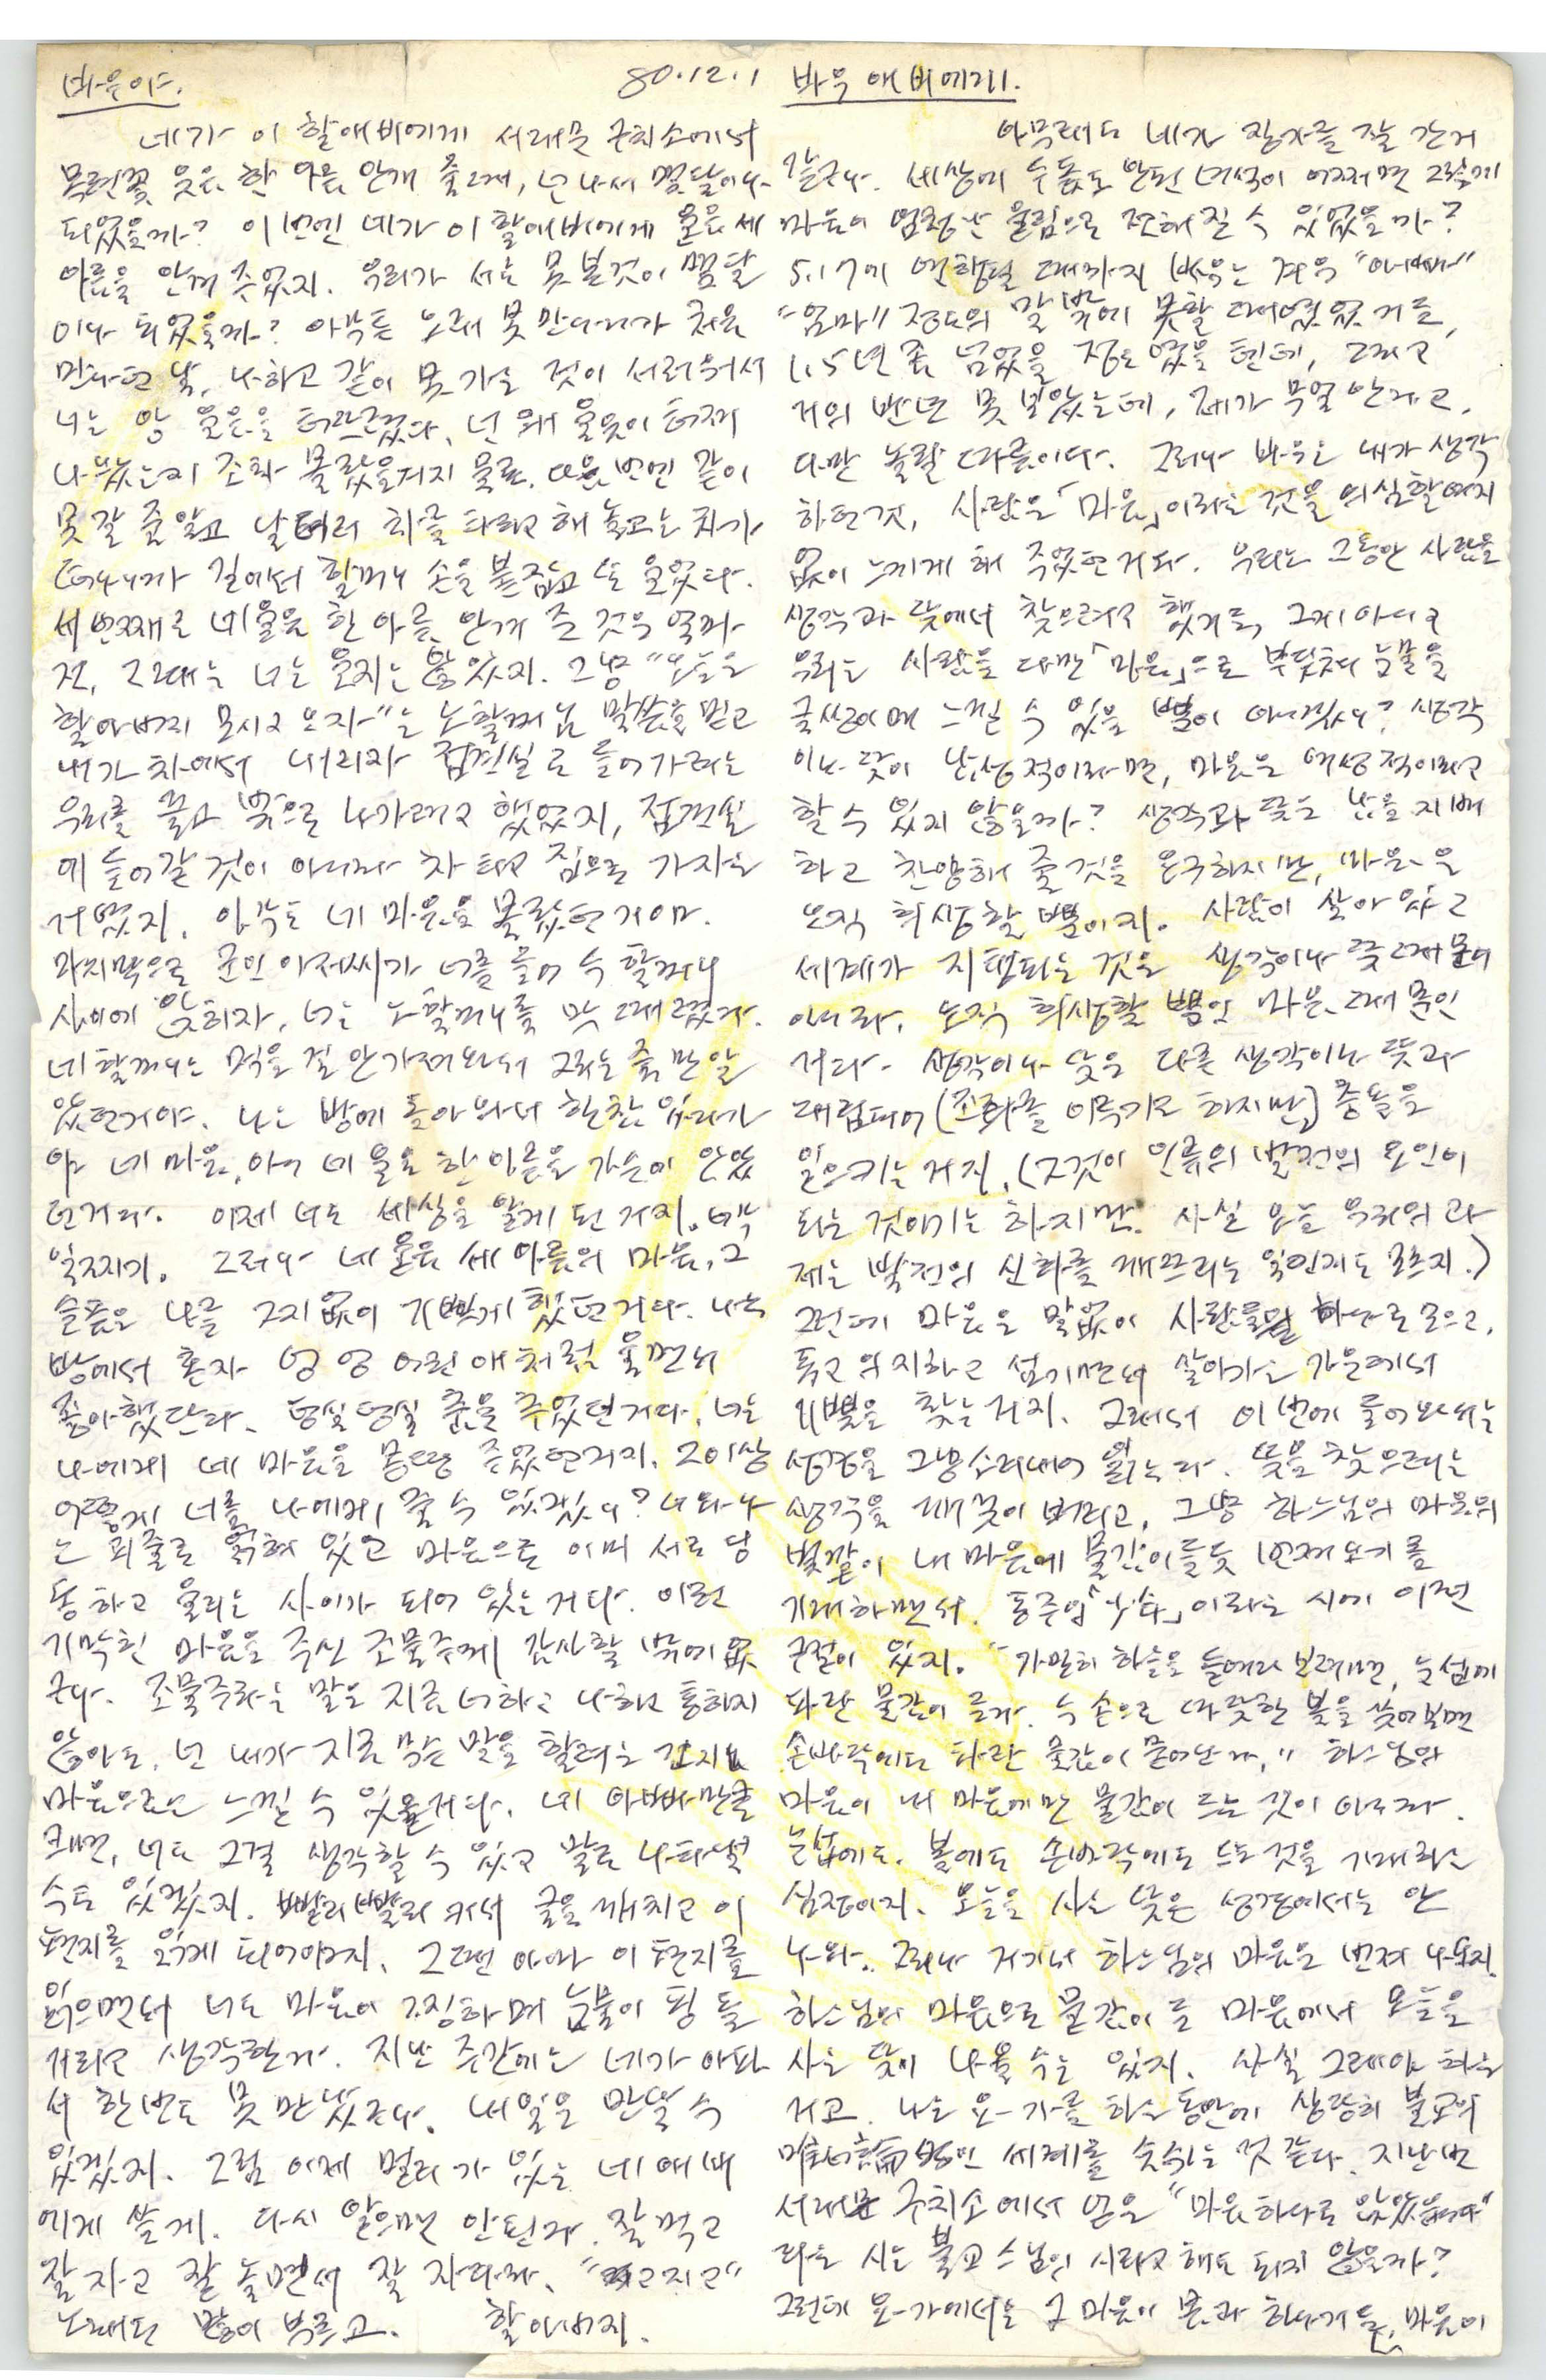 바우야.
네가 이 할애비에게 서대문 구치소에서
목련꽃 웃음 한 아름 안겨 줄 때, 넌 나서 몇달이나
되었을까? 이번엔 네가 이 할애비에게 울음 세
아름을 안겨 주었지. 우리가 서로 못 본것이 몇달
이나 되었을까? 아무튼 오래 못 만나다가 처음
만나던 날, 나하고 같이 못 가는 것이 서러워서
너는 앙 울음을 터뜨렸다. 넌 왜 울음이 터져
나왔는지 조차 몰랐을런지 몰라. 다음 번엔 같이
못 갈 줄 알고 날더러 차를 타라고 해 놓고는 차가
떠나니까 길에서 할머니 손을 붙잡고 또 울었다.
세번째로 네 울음 한 아름 안겨 준 것은 엊그
전, 그때는 너는 울지는 않았지. 그냥 "오늘은
할아버지 모시고 오자"는 노할머님 말씀을 믿고
내가 차에서 내리자 접견실로 들어가려는
우리를 끌고 밖으로 나가려고 했었지, 접견실
에 들어갈 것이 아니라 차 타고 집으로 가자는
거였지. 아무도 네 마음을 몰랐던 거야.
마지막으로 군인 아저씨가 너를 들어 두 할머니
사이에 앉히자, 너는 노할머니를 막 때렸다.
네 할머니는 먹을 걸 안가져와서 그러는 줄만 알
았던거야. 나는 방에 돌아와서 한참 있다가
야 네 마음, 아니 네 울음 한 아름을 가슴에 안았
던거다. 이제 너도 세상을 알게 된 거지. 너무
일찍이. 그러나 네 울음 세 아름의 마음, 그
슬픔은 나를 그지없이 기쁘게 했던거다. 나는
방에서 혼자 엉엉 어린애처럼 울면서
좋아했단다. 덩실덩실 춤을 추었던거다. 너는
나에게 네 마음을 몽땅 주었던거지. 그 이상
어떻게 너를 나에게 줄 수 있겠니? 너와 나
는 핏줄로 얽혀 있고 마음으로 이미 서로 당
통하고 울리는 사이가 되어 있는거다. 이런
기막힌 마음을 주신 조물주께 감사할 밖에 없
구나. 조물주라는 말은 지금 너하고 나하고 통하지
않아도, 넌 내가 지금 무슨 말을 할려는 건지는
마음으로는 느낄 수 있을거다. 네 아빠만큼
크면, 너도 그걸 생각할 수 있고 말로 나타낼
수도 있겠지. 빨리빨리 커서 글을 깨치고 이
편지를 읽게 되어야지. 그러면 아마 이 편지를
읽으면서 너도 마음이 찡하며 눈물이 핑 돌
거라고 생각한다. 지난 주간에는 네가 아파
서 한번도 못 만났구나. 내일은 만날 수
있겠지. 그럼 이제 멀리 가 있는 네 애비
에게 쓸게. 다시 앓으면 안된다. 잘 먹고
잘 자고 잘 놀면서 잘 자라라.
노래도 많이 부르고. 할아버지.
80.12.1 바우 애비에게.
아무래도 네가 장가를 잘 간거
같구나. 세상에 두돌도 안된 녀석이 어쩌면 그렇게
마음이 엄청난 울림으로 전해질 수 있었을까?
5.17에 연행될 때까지 바우는 겨우 "아빠"
"엄마" 정도의 말밖에 못할 때였었거든,
1.5년 좀 넘었을 정도였을 텐데, 그리고
거의 반년 못 보았는데, 제가 무얼 안다고,
다만 놀랄 따름이다. 그러나 바우는 내가 생각
하던것, 사람은 「마음」이라는 것을 의심할여지
없이 느끼게 해 주었던거다. 우리는 그동안 사람을
생각과 뜻에서 찾으려고 했거든, 그게 아니고
우리는 사람을 다만 「마음」으로 부딪쳐 눈물을
글썽이며 느낄 수 있을 뿐이 아니겠니? 생각
이나 뜻이 남성적이라면, 마음은 여성적이라고
할 수 있지 않을까? 생각과 뜻은 남을 지배
하고 찬양해 줄것을 요구하지만, 마음은
오직 희생할 뿐이지. 사람이 살아 있고
세계가 지탱되는 것은 생각이나 뜻 때문이
아니라, 오직 희생할 뿐인 마음 때문인
거다. 생각이나 뜻은 다른 생각이나 뜻과
대립되어 (조화를 이루기도 하지만) 충돌을
일으키는 거지. (그것이 인류의 발전의 요인이
되는 것이기는 하지만. 사실 오늘 우리의 과
제는 발전의 신화를 깨뜨리는 일인지도 모르지.)
그런데 마음은 말없이 사람들을 하나로 모으고,
돕고 의지하고 섬기면서 살아가는 가운데서
기쁨을 찾는거지. 그래서 이번에 들어와서는
성경을 그냥 소리내어 읽는다. 뜻을 찾으려는
생각을 깨끗이 버리고, 그냥 하느님의 마음의
빛깔이 내 마음에 물감이들듯 번져오기를
기대하면서. 동주의 「少年」이라는 시에 이런
구절이 있지. "가만히 하늘을 들여다 보려면, 눈섭에
파란 물감이 든다. 두 손으로 따뜻한 볼을 쓰어보면
손바닥에도 파란 물감이 묻어난다." 하느님의
마음이 내 마음에만 물감이 드는 것이 아니라.
눈섭에도. 볼에도 손바닥에도 드는 것을 기대하는
심정이지. 오늘을 사는 뜻은 성경에서는 안
나와. 그러나 거기서 하느님의 마음은 번져 나오지.
하느님의 마음으로 물감이 든 마음에서 오늘을
사는 뜻이 나올 수는 있지. 사실 그래야 하는
거고. 나는 요가를 하는 동안에 상당히 불교의
唯心論的인 세계를 숨쉬는 것 같다. 지난번
서대문 구치소에서 얻은 "마음 하나로 앉았읍니다"
라는 시는 불교 스님의 시라고 해도 되지 않을까?
그런데 요가에서는 그 마음이 몸과 하나거든, 마음이